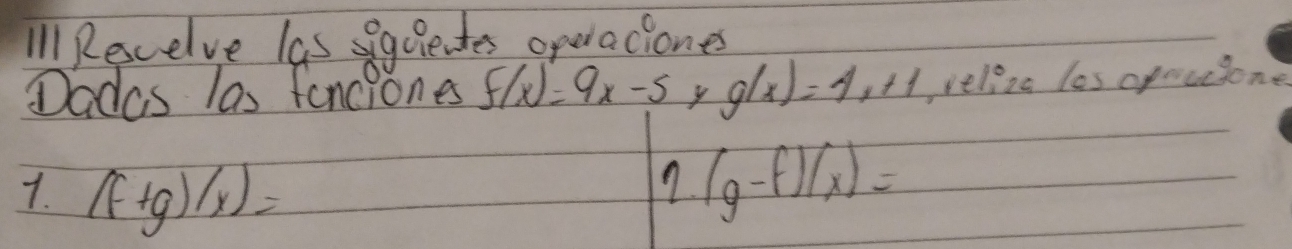 III Resuelve las siguientes operaciones
Dadas las funciones f(x)=9x-5 y g(x)= +1, reliza las operaciones
1. (f+g)(x)=
2. (g-f)(x)=